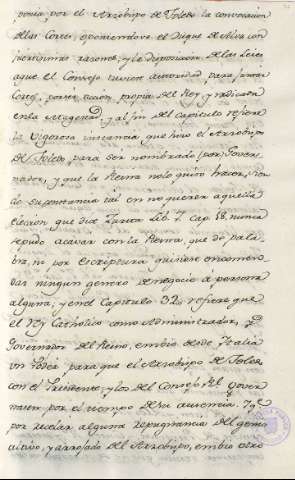 ponia, por el Arzobispo de Toledo la convocacion
de las Cortes, oponiendose el Duque de Alva con
fortisimas razones, y la disposicion de las Leies
a que el Consejo tuviese autoridad para juntar
Cortes, por ser accion propia del Rey, y radicada
en la Magestad y al fin del capitulo refiere
la vigorosa instancia que hizo el Arzobispo
de Toledo, para ser nombrado por Gover-
nador, y que la Reina no lo quiso hacer, sien-
do su constancia tal en no querer aquella
eleccion que dice Zurita Lib. 7. Cap. 28. nunca
se pudo acavar con la Reina, que de pala-
bra, ni por escriptura quisiese encomen-
dar ningun genero de negocio a persona
alguna; y en el Capitulo 32 refiere que
el Rey Catholico como Administrador, y
Governador del Reino, embio desde Italia
un Poder para que el Arzobispo de Toledo
con el Presidente, y los del Consejo Rl. gover-
nasen por el tiempo de su ausencia. Y
por recelar alguna repugnancia del genio
activo, y arrojado del Arzobispo, embio otro